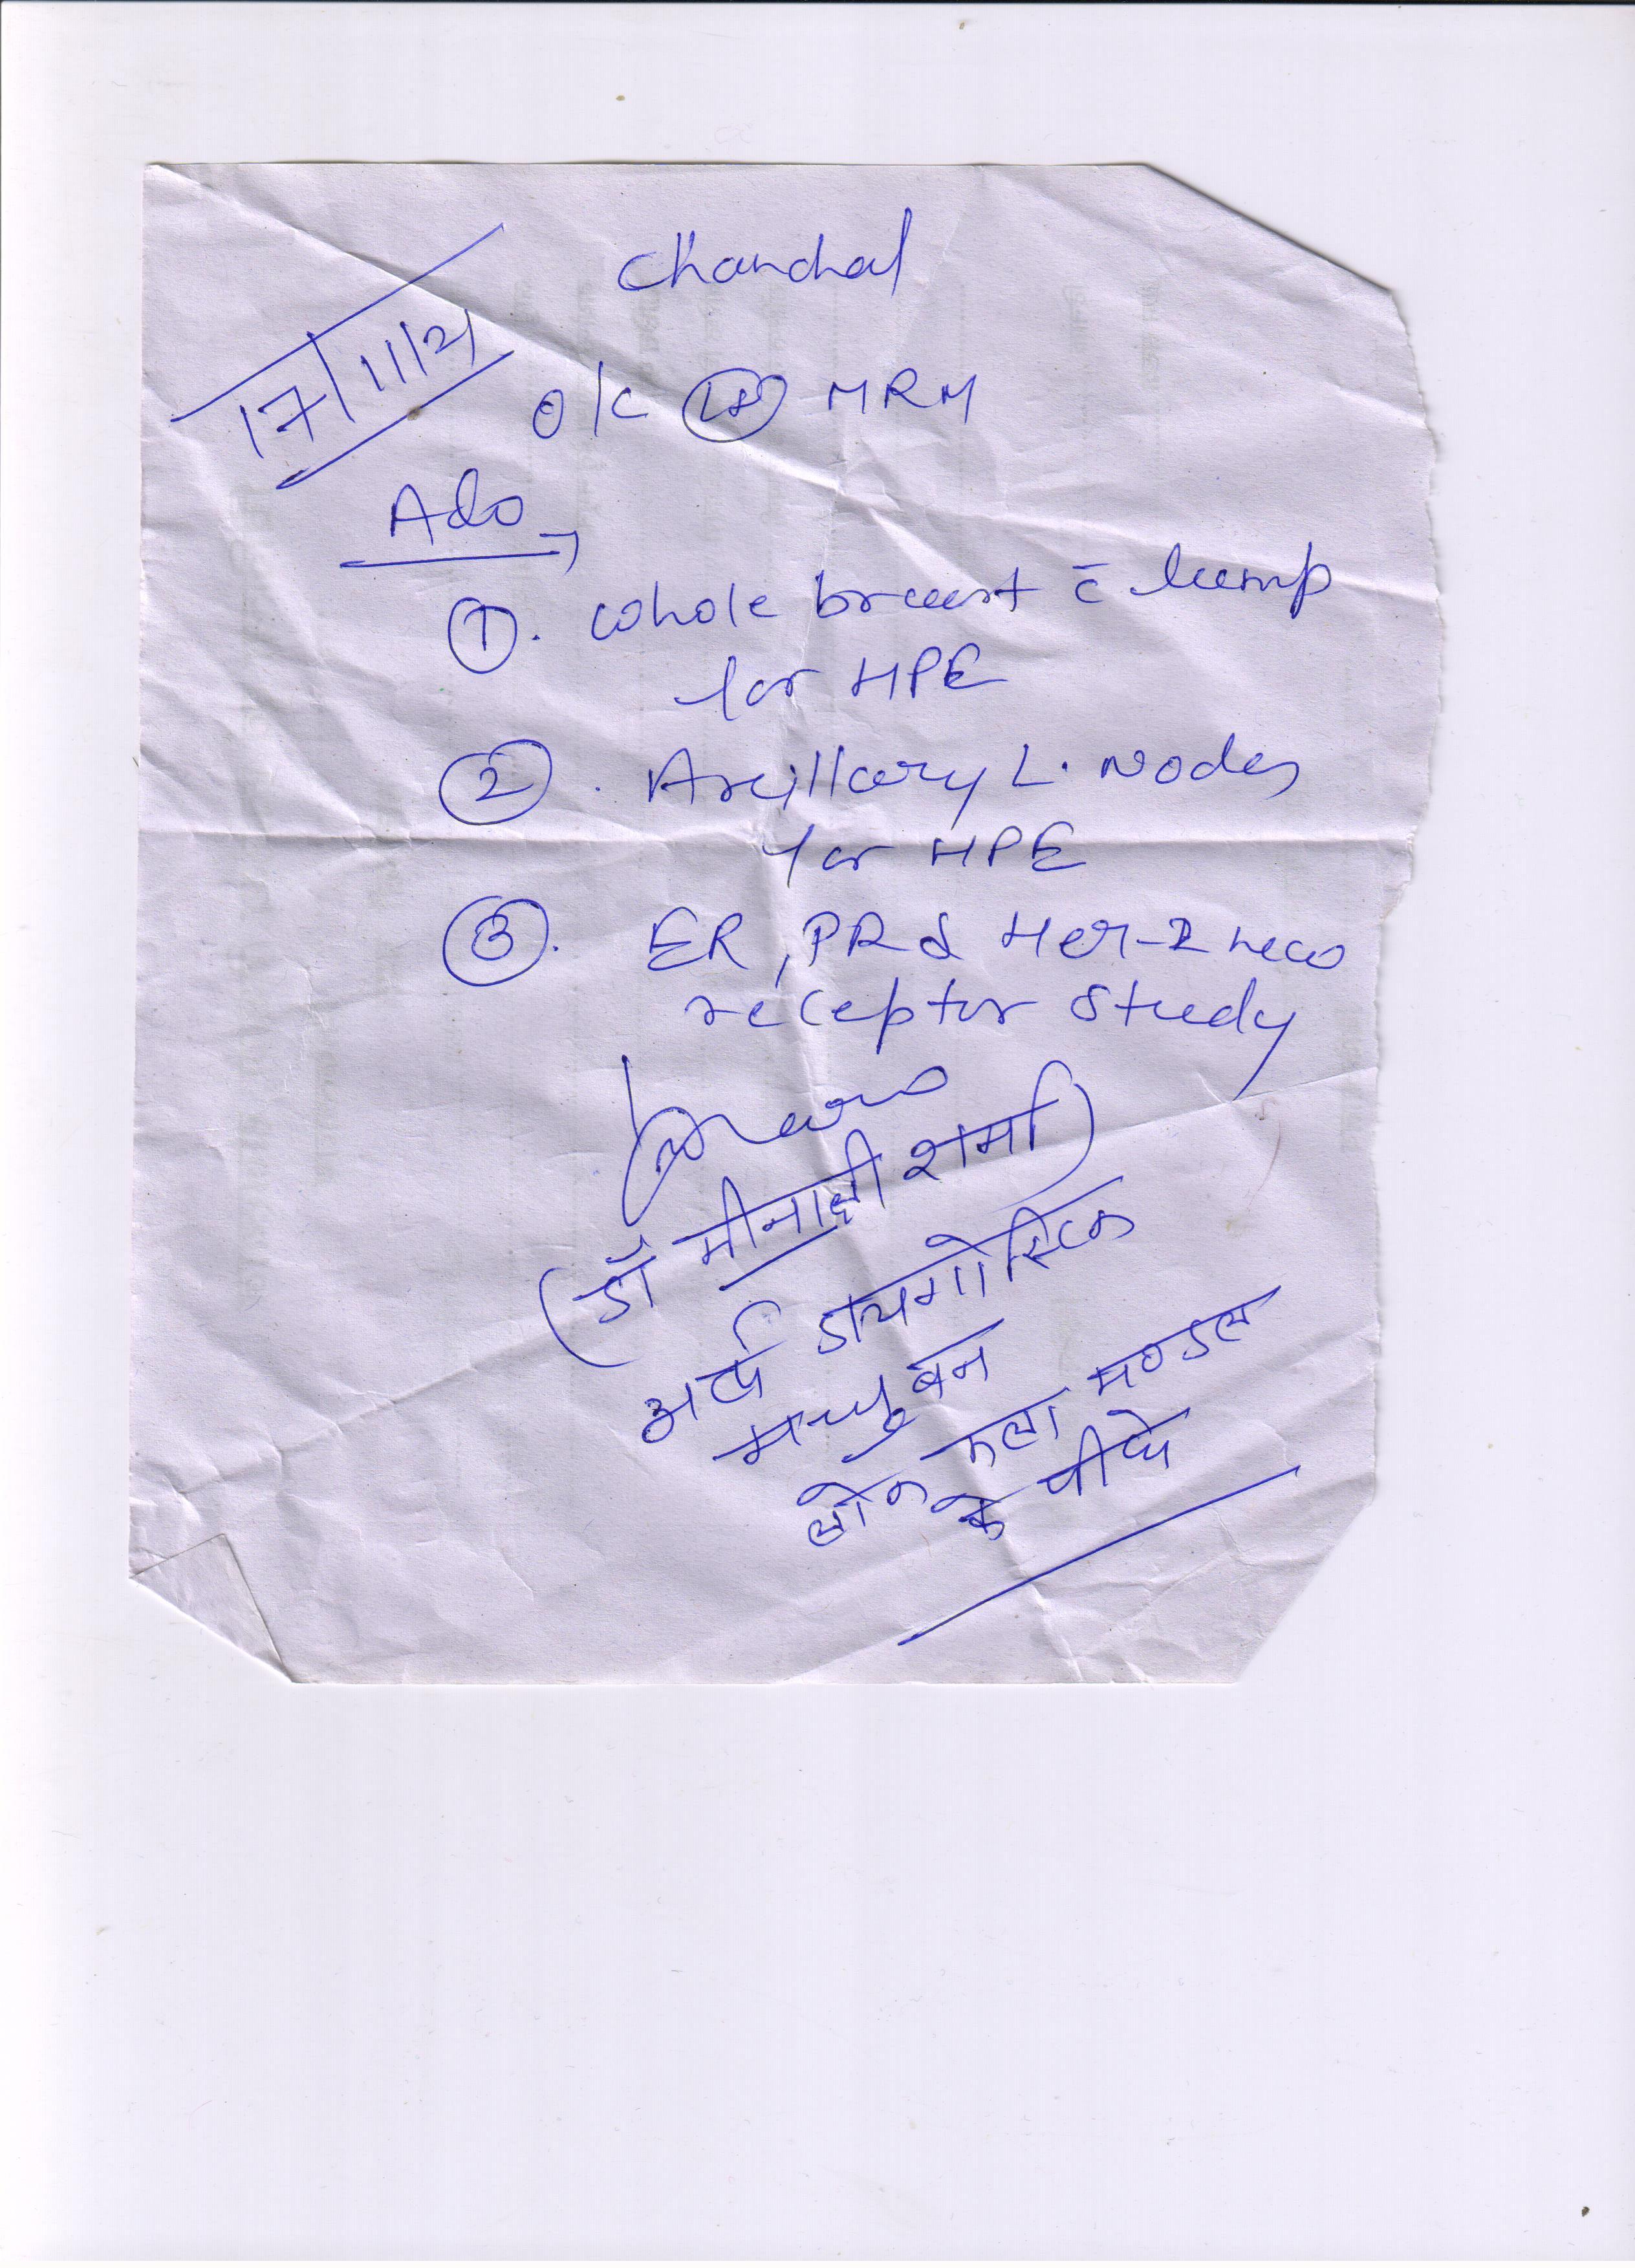 Chanchal
17/11/21
O/C Lt MRM
Adv
1. Whole breast c̄ lump
for HPE
2. Axillary L. Nodes
for HPE
3. ER, PR & Her-2 neu
receptor study
(डॉ मीनाक्षी शर्मा)
अर्थ डायगोस्टिक
मधुबन
लोक कला मण्डल
के पीछे